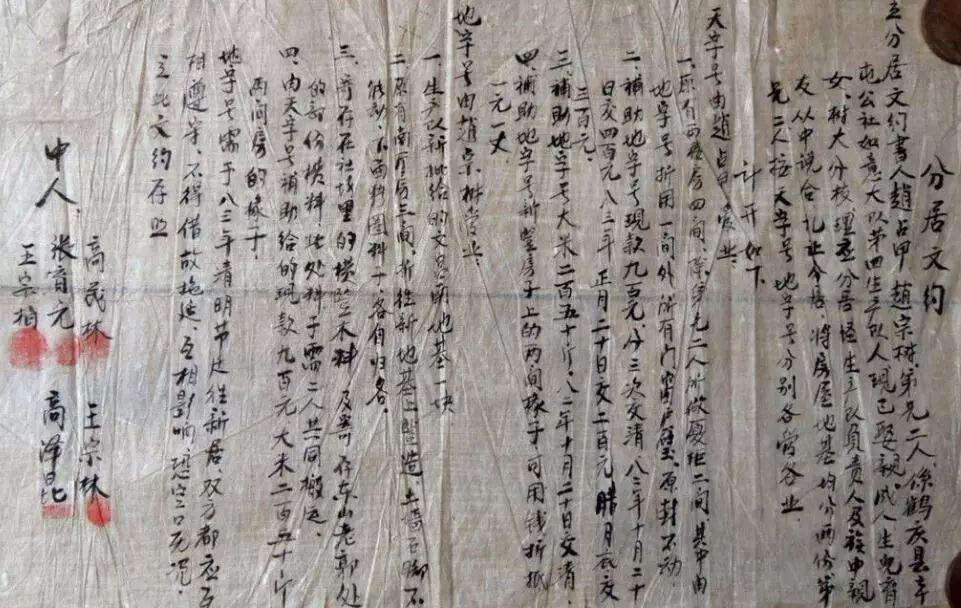 分居文约
立分居文约书人赵占甲 赵宗树弟兄二人,係鹤庆县辛
屯公社如意大队第四生产队人现已娶亲,成人生儿育
女、树大分枝,理应分居,经生产队负责人及族中亲
友从中说合,礼让分居,将房屋地基均分两份弟
兄二人按天字号地字号分别各管各业
计开如下
天字号由赵占甲管业,
一,原有西楼房四间,除弟兄二人所做厦柜二间其中由
地字号折用一间外所有门窗户壁,原封不动
二、补助地字号现款九百元,分三次交清八二年十月二十
日交四百元八三年正月二十日交二百元腊月底交
三百元.
三,补助地字号大米二百五十斤,八二年十月二十日交清,
四,补助地字号新竖房子上的两间椽子可用钱折抵
一元一丈
地字号由赵宗树管业,
一,生产队新批给的文昌南地基一块
二,原有南厅房三间,折往新地基上竖造,土墙石脚不
能动,东西料圈料子,各自归各,
三,寄存在社场里的横竖木料及寄存东山老郭处
的部份横料,此处料子需二人共同搬运,
四,由天字号补助给的现款九百元大米二百五十斤
两间房的椽子,
地字号需于八三年清明节迁往新居,双方都应互
相遵守,不得借故拖延,互相影响,恐空口无凭,
立此文约存照
中人,
高茂林 王宗林
张育元
王宗柏 高泽昆